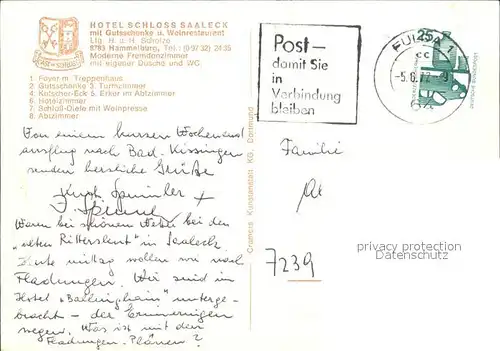 HOTEL SCHLOSS SAALECK
mit Gutsschänke u. Weinrestaurant
Ltg. H. d. H. Scholze
8783 Hammelburg, Tel.: (0 97 32) 24 35
Moderne Fremdenzimmer
mit eigener Dusche und WC
1 Foyer m. Treppenhaus
2 Gutsschänke 3. Turmzimmer
4 Kutscher-Eck 5. Erker im Abtzimmer
6 Hotelzimmer
7 Schloß-Diele mit Weinpresse
8 Abtzimmer
Von einem kurzen Wochenend
ausflug nach Bad-Kissingen
senden herzliche Grüße
Kurt
Waren bei schönem Wetter bei den
"alten Rittersleut" in Saaleck.
Heute mittag wollen wir nach
Fladungen. Wir sind im
Hotel "Ballinghain" unterge-
bracht – der Erinnerungen
wegen. Was ist mit den
Fladungen-Plänen?
Cramers Kunstanstalt KG, Dortmund
Post –
damit Sie
in
Verbindung
bleiben
FULDA 1
cc
25
Familie
7239
privacy protection
Datenschutz